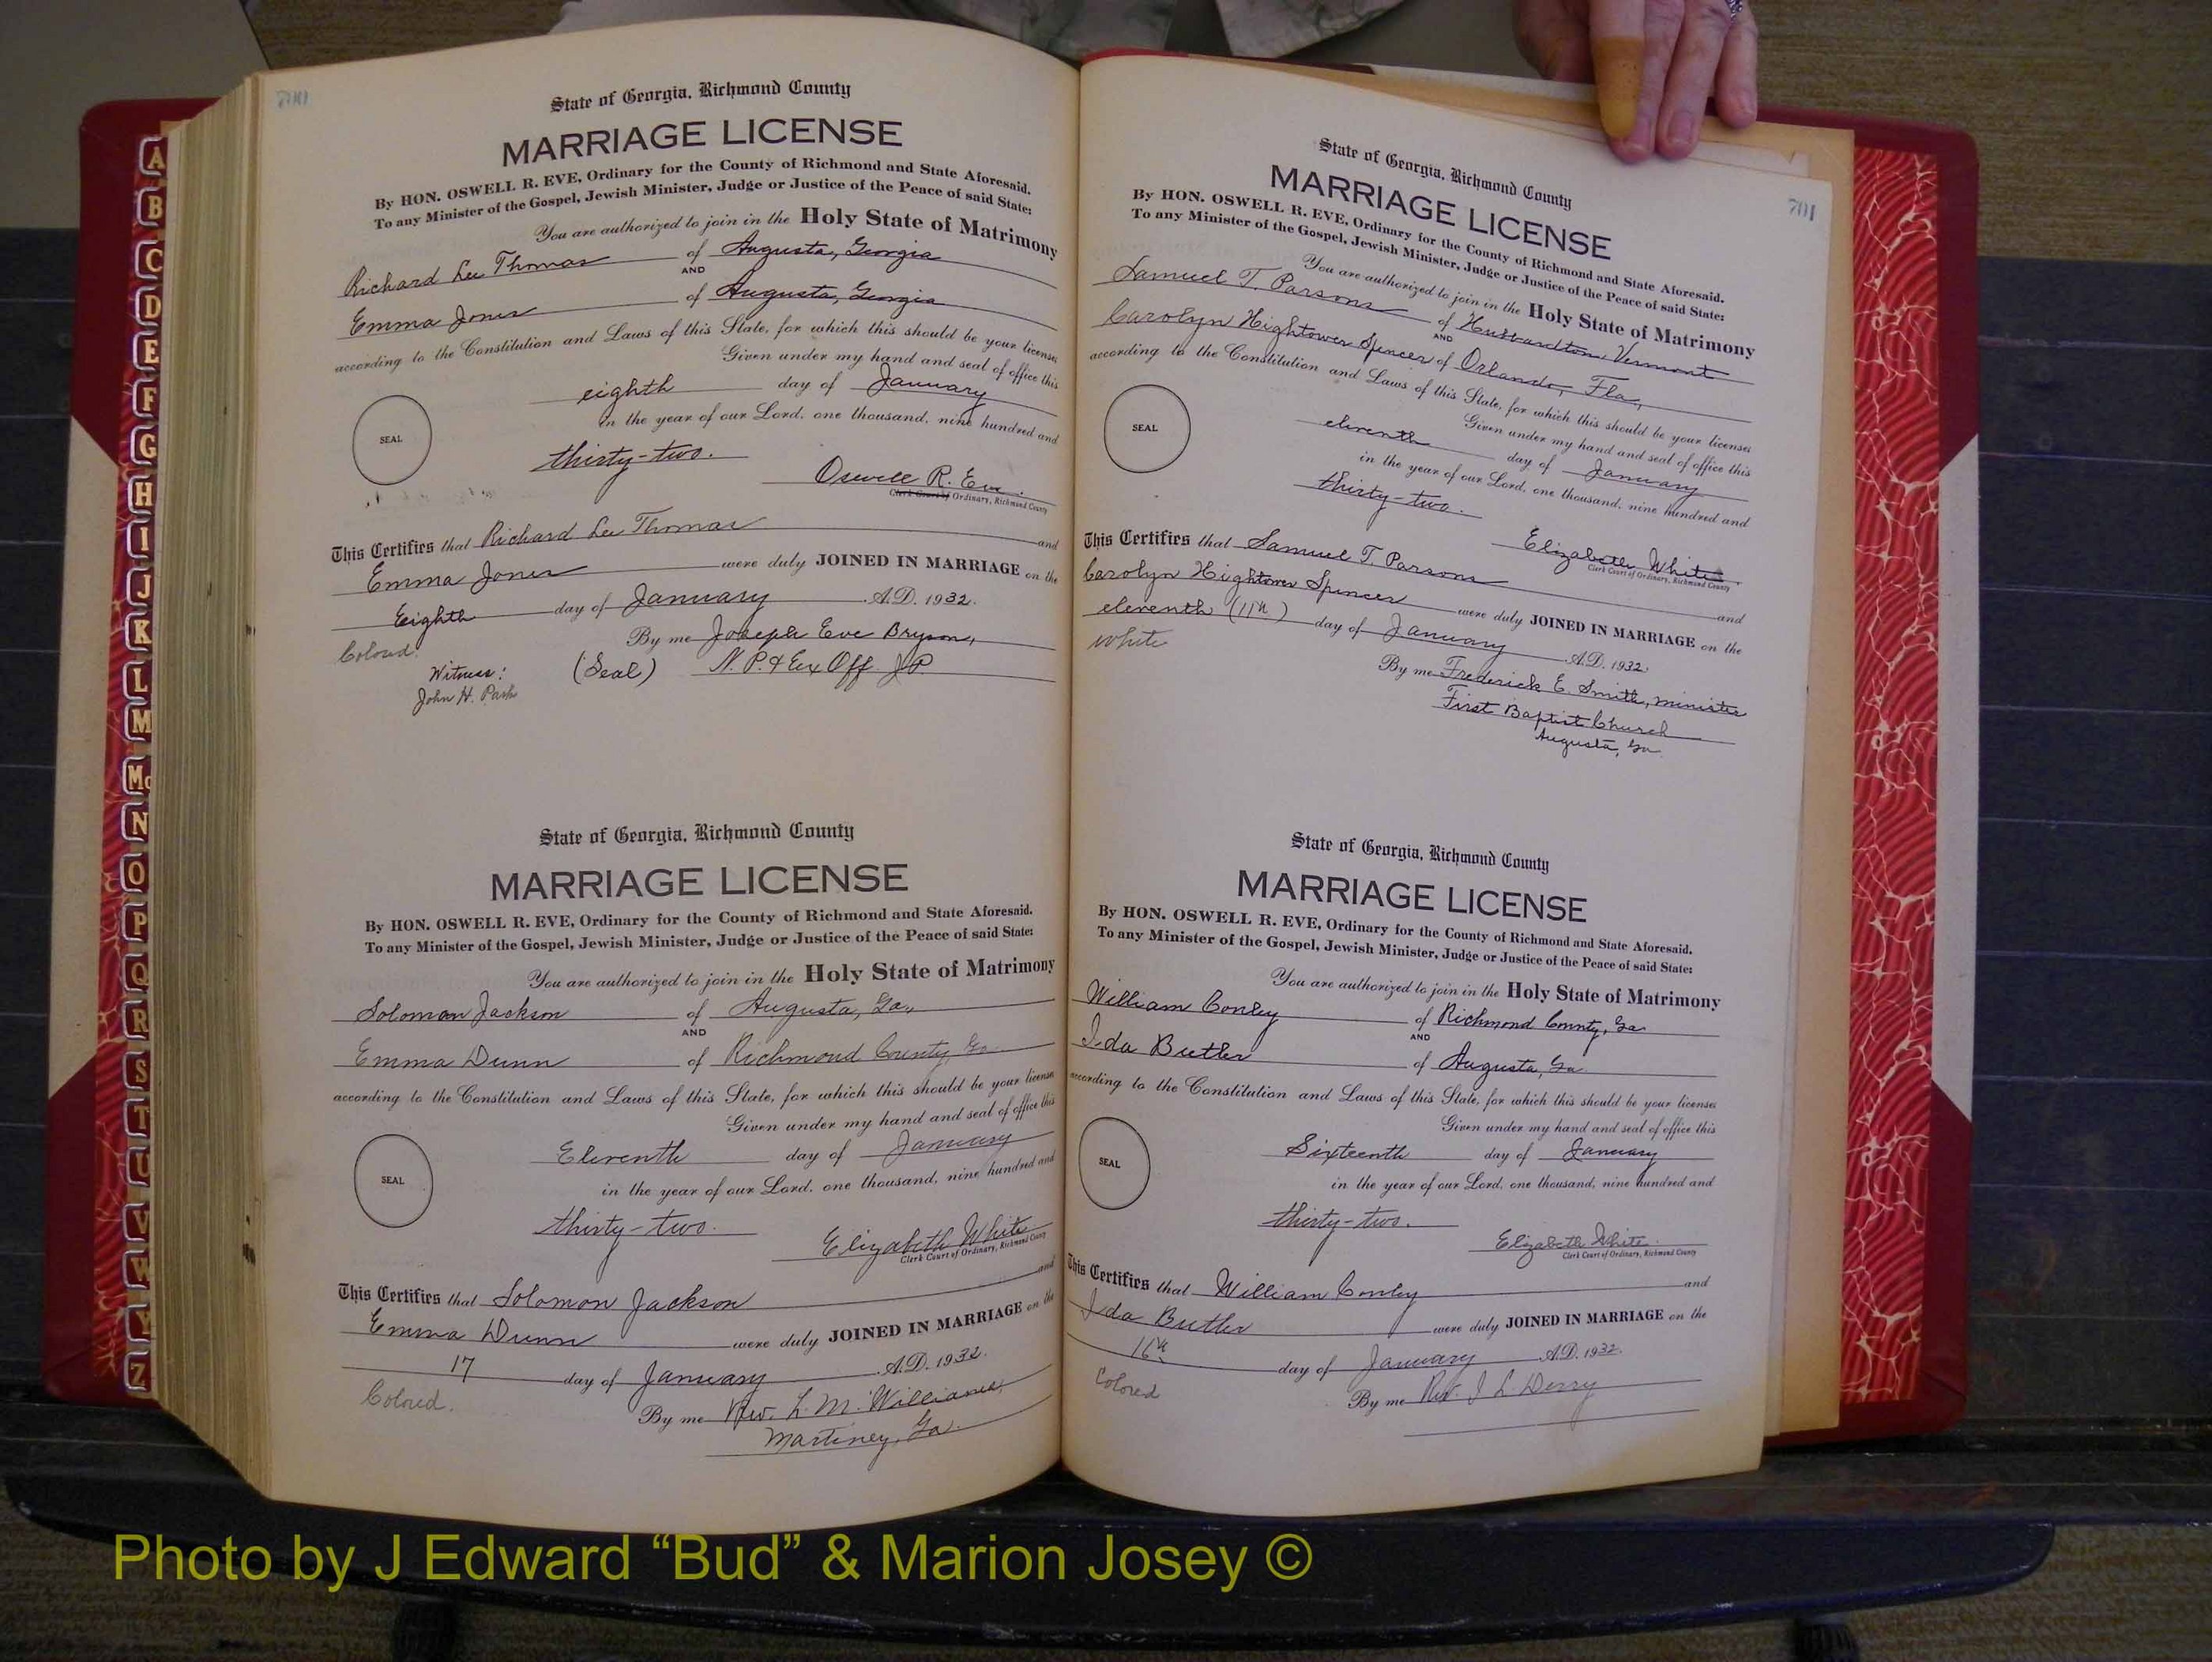 A
B
C
D
E
F
G
H
I
J
K
L
M
Mc
N
O
P
Q
R
S
T
U
V
W
Y
Z
700
State of Georgia, Richmond County
MARRIAGE LICENSE
By HON. OSWELL R. EVE, Ordinary for the County of Richmond and State Aforesaid.
To any Minister of the Gospel, Jewish Minister, Judge or Justice of the Peace of said State:
You are authorized to join in the Holy State of Matrimony
Richard Lee Thomas of Augusta, Georgia
AND
Emma Jones of Augusta, Georgia
according to the Constitution and Laws of this State, for which this should be your license
Given under my hand and seal of office this
eighth day of January
in the year of our Lord, one thousand, nine hundred and
SEAL
thirty-two.
Oswell R. Eve.
Clerk Court of Ordinary, Richmond County
This Certifies that Richard Lee Thomas and
Emma Jones were duly JOINED IN MARRIAGE on the
Eighth day of January A.D. 1932.
Colored. By me Joseph Eve Bryson,
Witness: (Seal) N. P. & Ex Off. J P.
John H. Park
State of Georgia, Richmond County
MARRIAGE LICENSE
By HON. OSWELL R. EVE, Ordinary for the County of Richmond and State Aforesaid.
To any Minister of the Gospel, Jewish Minister, Judge or Justice of the Peace of said State:
You are authorized to join in the Holy State of Matrimony
Soloman Jackson of Augusta, Ga.,
AND
Emma Dunn of Richmond County, Ga.
according to the Constitution and Laws of this State, for which this should be your license
Given under my hand and seal of office this
Eleventh day of January
SEAL
in the year of our Lord, one thousand, nine hundred and
thirty-two.
Elizabeth White
Clerk Court of Ordinary, Richmond County
This Certifies that Solomon Jackson and
Emma Dunn were duly JOINED IN MARRIAGE on the
17 day of January A.D. 1932.
Colored. By me Rev. L. M. Williams,
Martiney, Ga.
701
State of Georgia, Richmond County
MARRIAGE LICENSE
By HON. OSWELL R. EVE, Ordinary for the County of Richmond and State Aforesaid.
To any Minister of the Gospel, Jewish Minister, Judge or Justice of the Peace of said State:
You are authorized to join in the Holy State of Matrimony
Samuel T. Parsons of Hubbardton, Vermont
AND
Carolyn Hightower Spencer of Orlando, Fla.,
according to the Constitution and Laws of this State, for which this should be your license
Given under my hand and seal of office this
SEAL
eleventh day of January
in the year of our Lord, one thousand, nine hundred and
thirty-two.
Elizabeth White.
Clerk Court of Ordinary, Richmond County
This Certifies that Samuel T. Parsons and
Carolyn Hightower Spencer were duly JOINED IN MARRIAGE on the
eleventh (11th) day of January A.D. 1932.
White
By me Frederick E. Smith, minister
First Baptist Church
Augusta, Ga.
State of Georgia, Richmond County
MARRIAGE LICENSE
By HON. OSWELL R. EVE, Ordinary for the County of Richmond and State Aforesaid.
To any Minister of the Gospel, Jewish Minister, Judge or Justice of the Peace of said State:
You are authorized to join in the Holy State of Matrimony
William Conley of Richmond County, Ga
AND
Ida Butler of Augusta, Ga
according to the Constitution and Laws of this State, for which this should be your license
Given under my hand and seal of office this
Sixteenth day of January
SEAL
in the year of our Lord, one thousand, nine hundred and
thirty-two.
Elizabeth White.
Clerk Court of Ordinary, Richmond County
This Certifies that William Conley and
Ida Butler were duly JOINED IN MARRIAGE on the
16th day of January A.D. 1932.
Colored By me Rev. J L. Derry
Photo by J Edward “Bud” & Marion Josey ©